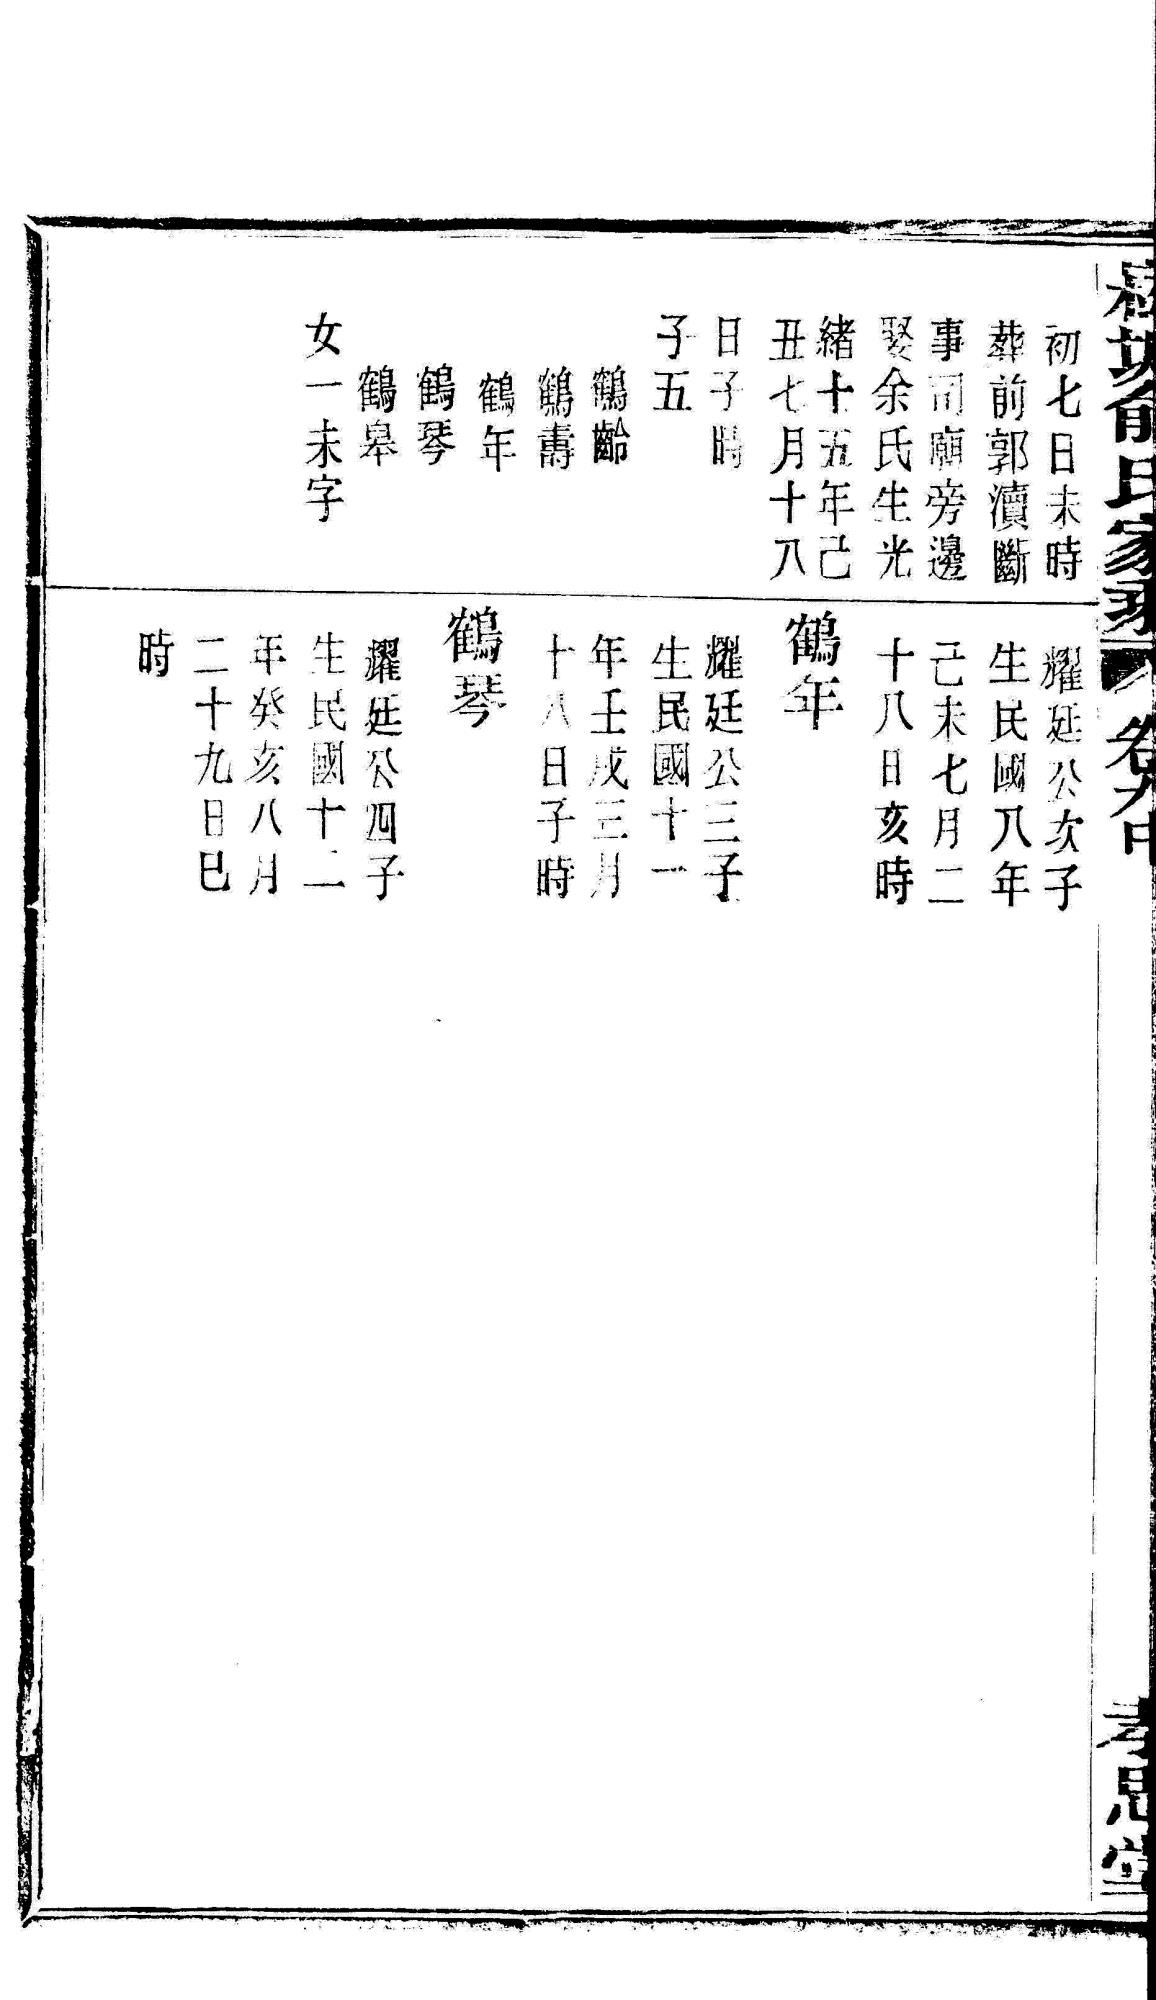 俞氏家乘
卷九中
孝思堂
初七日未時
葬前郭瀆斷
事司廟旁邊
娶余氏生光
緒十五年己
丑七月十八
日子時
子五
鶴齡
鶴壽
鶴年
鶴琴
鶴皋
女一未字
耀廷公次子
生民國八年
己未七月二
十八日亥時
鶴年
耀廷公三子
生民國十一
年壬戌三月
十八日子時
鶴琴
耀廷公四子
生民國十二
年癸亥八月
二十九日巳
時